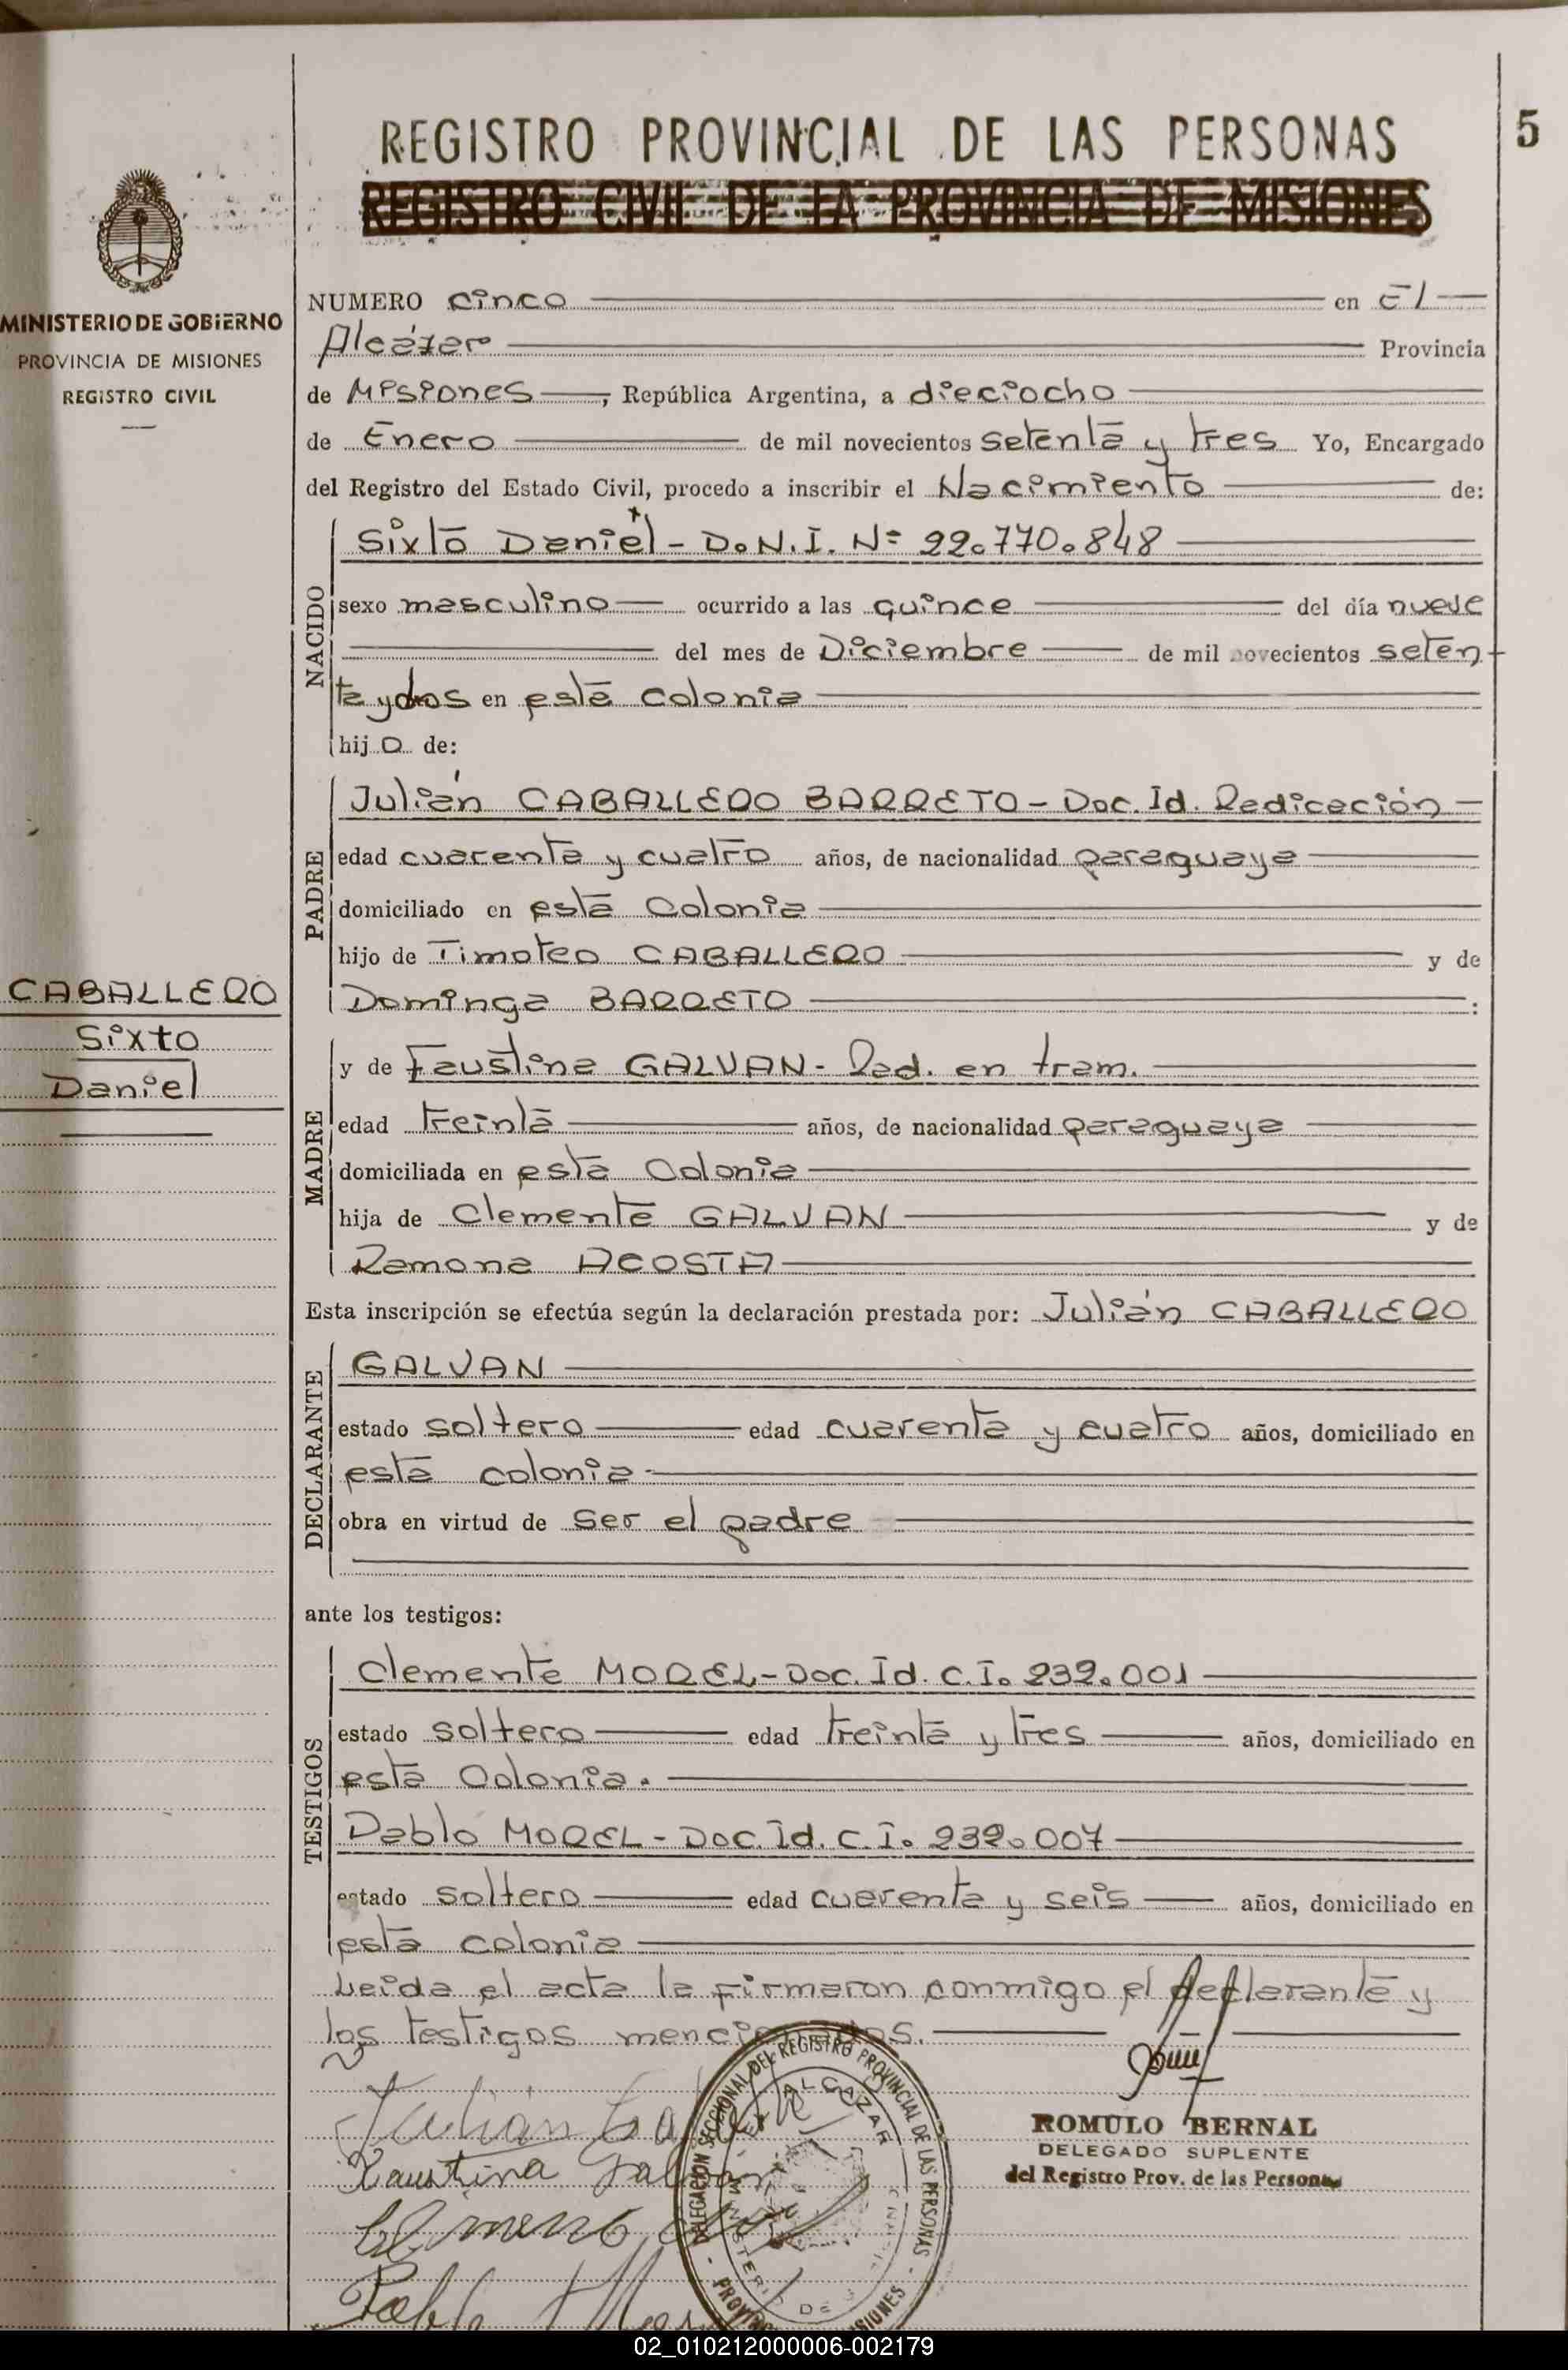 REGISTRO PROVINCIAL DE LAS PERSONAS
5
REGISTRO CIVIL DE LA PROVINCIA DE MISIONES
MINISTERIO DE GOBIERNO
PROVINCIA DE MISIONES
REGISTRO CIVIL
NUMERO cinco en El
Alcázar Provincia
de Misiones, República Argentina, a dieciocho
de Enero de mil novecientos setenta y tres Yo, Encargado
del Registro del Estado Civil, procedo a inscribir el Nacimiento de:
NACIDO
Sixto Daniel - D.N.I. Nº 22.770.848
sexo masculino ocurrido a las quince del día nueve
del mes de Diciembre de mil novecientos seten
ta y dos en esta colonia
hijo de:
PADRE
Julián CABALLERO BARRETO - Doc. Id. Radicación
edad cuarenta y cuatro años, de nacionalidad paraguaya
domiciliado en esta Colonia
hijo de Timoteo CABALLERO y de
Dominga BARRETO :
CABALLERO
Sixto
Daniel
MADRE
y de Faustina GALVAN - Rad. en tram.
edad treinta años, de nacionalidad paraguaya
domiciliada en esta Colonia
hija de Clemente GALVAN y de
Ramona ACOSTA
Esta inscripción se efectúa según la declaración prestada por: Julián CABALLERO
DECLARANTE
GALVAN
estado soltero edad cuarenta y cuatro años, domiciliado en
esta colonia
obra en virtud de ser el padre
ante los testigos:
TESTIGOS
Clemente MOREL - Doc. Id. C.I. 232.001
estado soltero edad treinta y tres años, domiciliado en
esta Colonia.
Pablo MOREL - Doc. Id. C.I. 232.007
estado soltero edad cuarenta y seis años, domiciliado en
esta colonia
Leida el acta la firmaron conmigo el declarante y
los testigos mencionados.
DELEGACION SECCIONAL DEL REGISTRO PROVINCIAL DE LAS PERSONAS
EL ALCAZAR
MINISTERIO DE
Julián
Faustina Galván
Pablo
ROMULO BERNAL
DELEGADO SUPLENTE
del Registro Prov. de las Personas
02_010212000006-002179